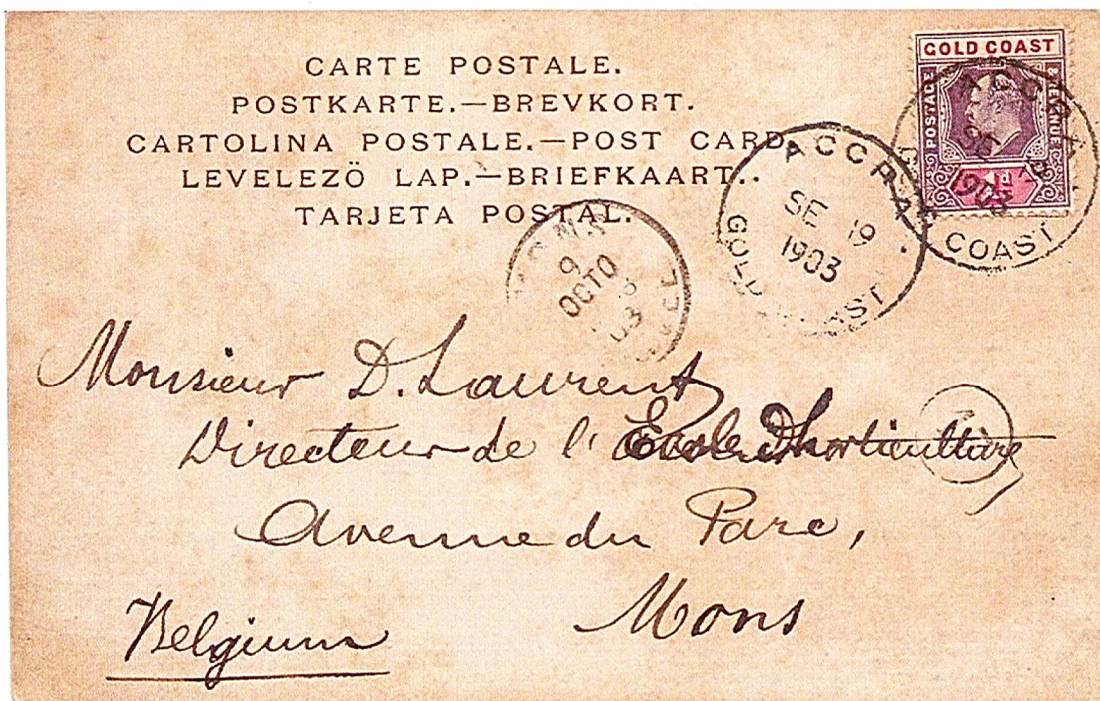 CARTE POSTALE.
POSTKARTE.—BREVKORT.
CARTOLINA POSTALE.—POST CARD.
LEVELEZÖ LAP.—BRIEFKAART..
TARJETA POSTAL.
GOLD COAST
POSTAGE & REVENUE
1d
ACCRA
SE 19
1903
GOLD COAST
ACCRA
SE 19
1903
COAST
9
OCTO
03
Monsieur D. Laurent
Directeur de l' Ecole D'horticulture
Avenue du Parc,
Mons
Belgium